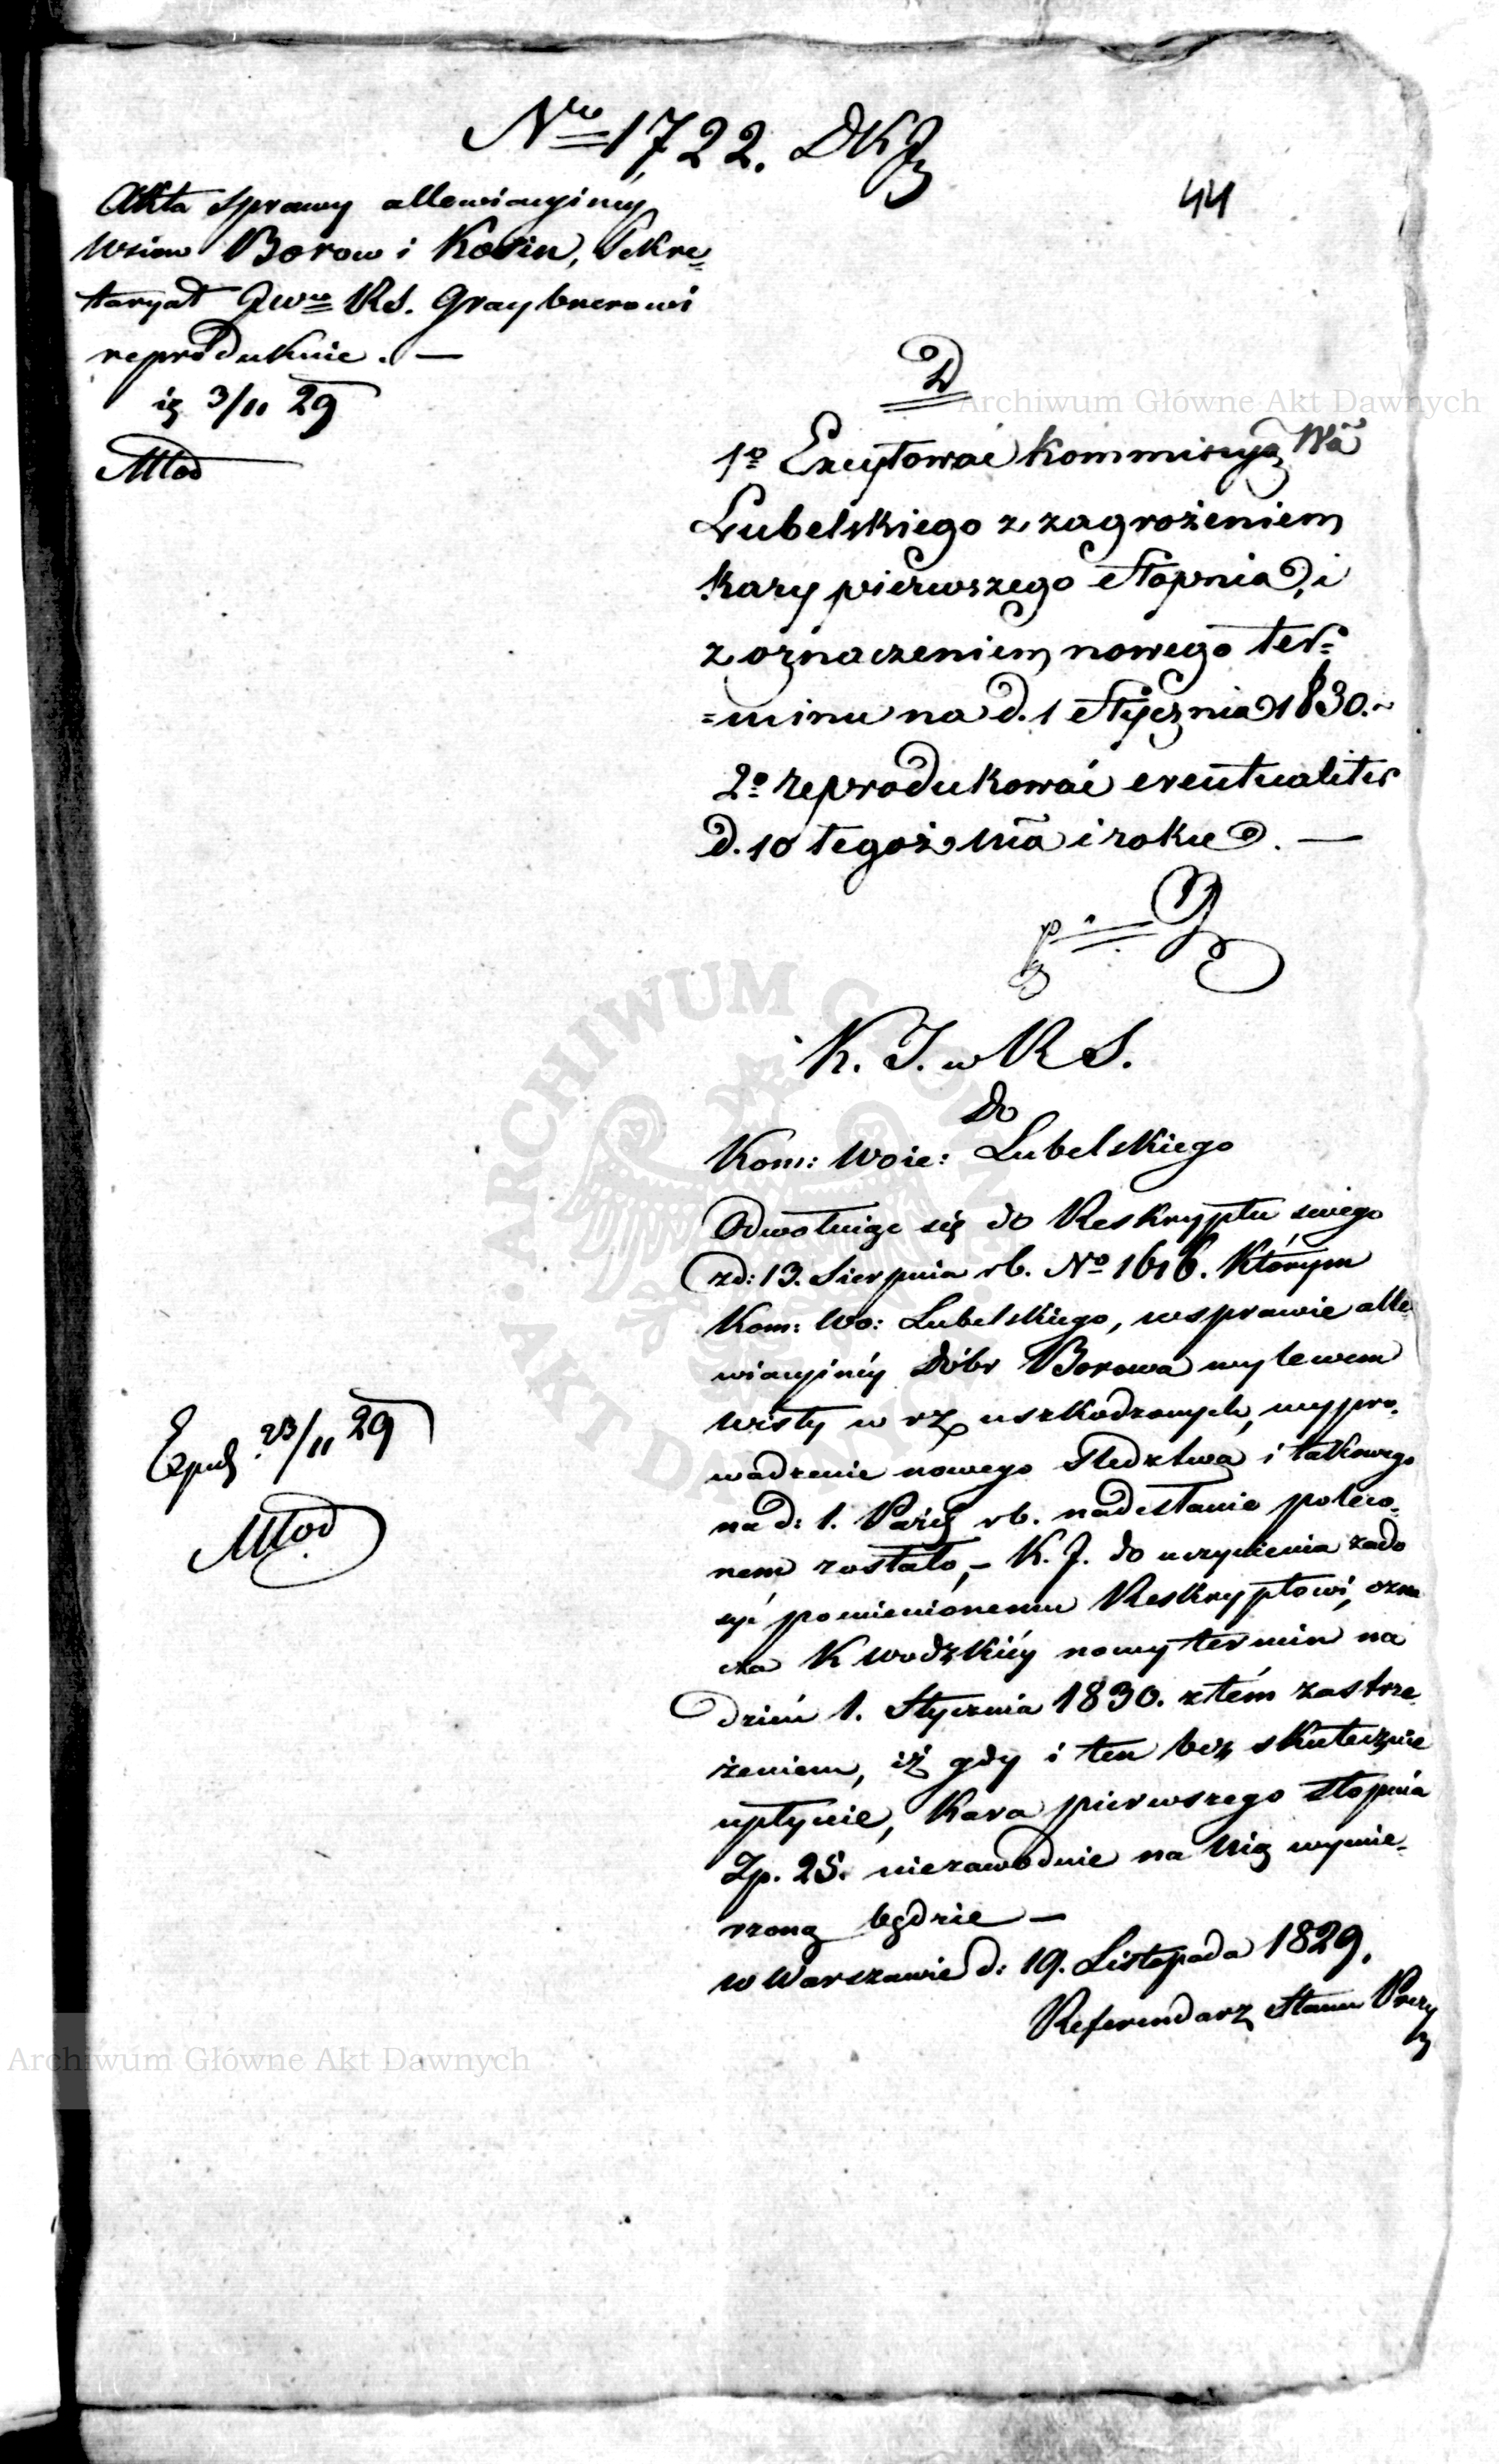 Nro 1,722. DKJ
44
Akta sprawy allewiacyiney
wsiow Borow i Kosin, Sekre=
taryat JWu RS. Graybnerowi
reprodukuie. —
3/11 29
Młod
D
1o Excytować Kommissyą Wa
Lubelskiego z zagrożeniem
kary pierwszego stopnia, i
z oznaczeniem nowego ter=
=minu na d. 1 Stycznia 1830.~
2o reprodukować eventualiter
d. 10 tegoż Ma i roku. —
K. J. w R S.
do
Kom: Woie: Lubelskiego
Odwołuiąc się do Reskryptu swego
zd: 13. Sierpnia rb. No 1616. którym
Kom: Wo: Lubelskiego, w sprawie alle
wiacyiney Dóbr Borowa wylewem
Wisły w rz uszkodzonych, wypro-
wadzenie nowego śledztwa i takowego
na d: 1. Paźd rb. nadesłanie poleco-
nem zostało, – K. J. do uczynienia zado
syć pomienionemu Reskryptowi, ozna
cza K Wodzkiey nowy termin na
dzień 1. Stycznia 1830. z tém zastrze-
żeniem, iż gdy i ten bez skutecznie
upłynie, kara pierwszego stopnia
Zp. 25. niezawodnie na Nią wymie-
rzoną będzie —
w Warszawie d: 19. Listopada 1829.
Referendarz Stanu Prezy
Exped 23/11 29
Młod
Archiwum Główne Akt Dawnych
ARCHIWUM GŁÓWNE AKT DAWNYCH
Archiwum Główne Akt Dawnych